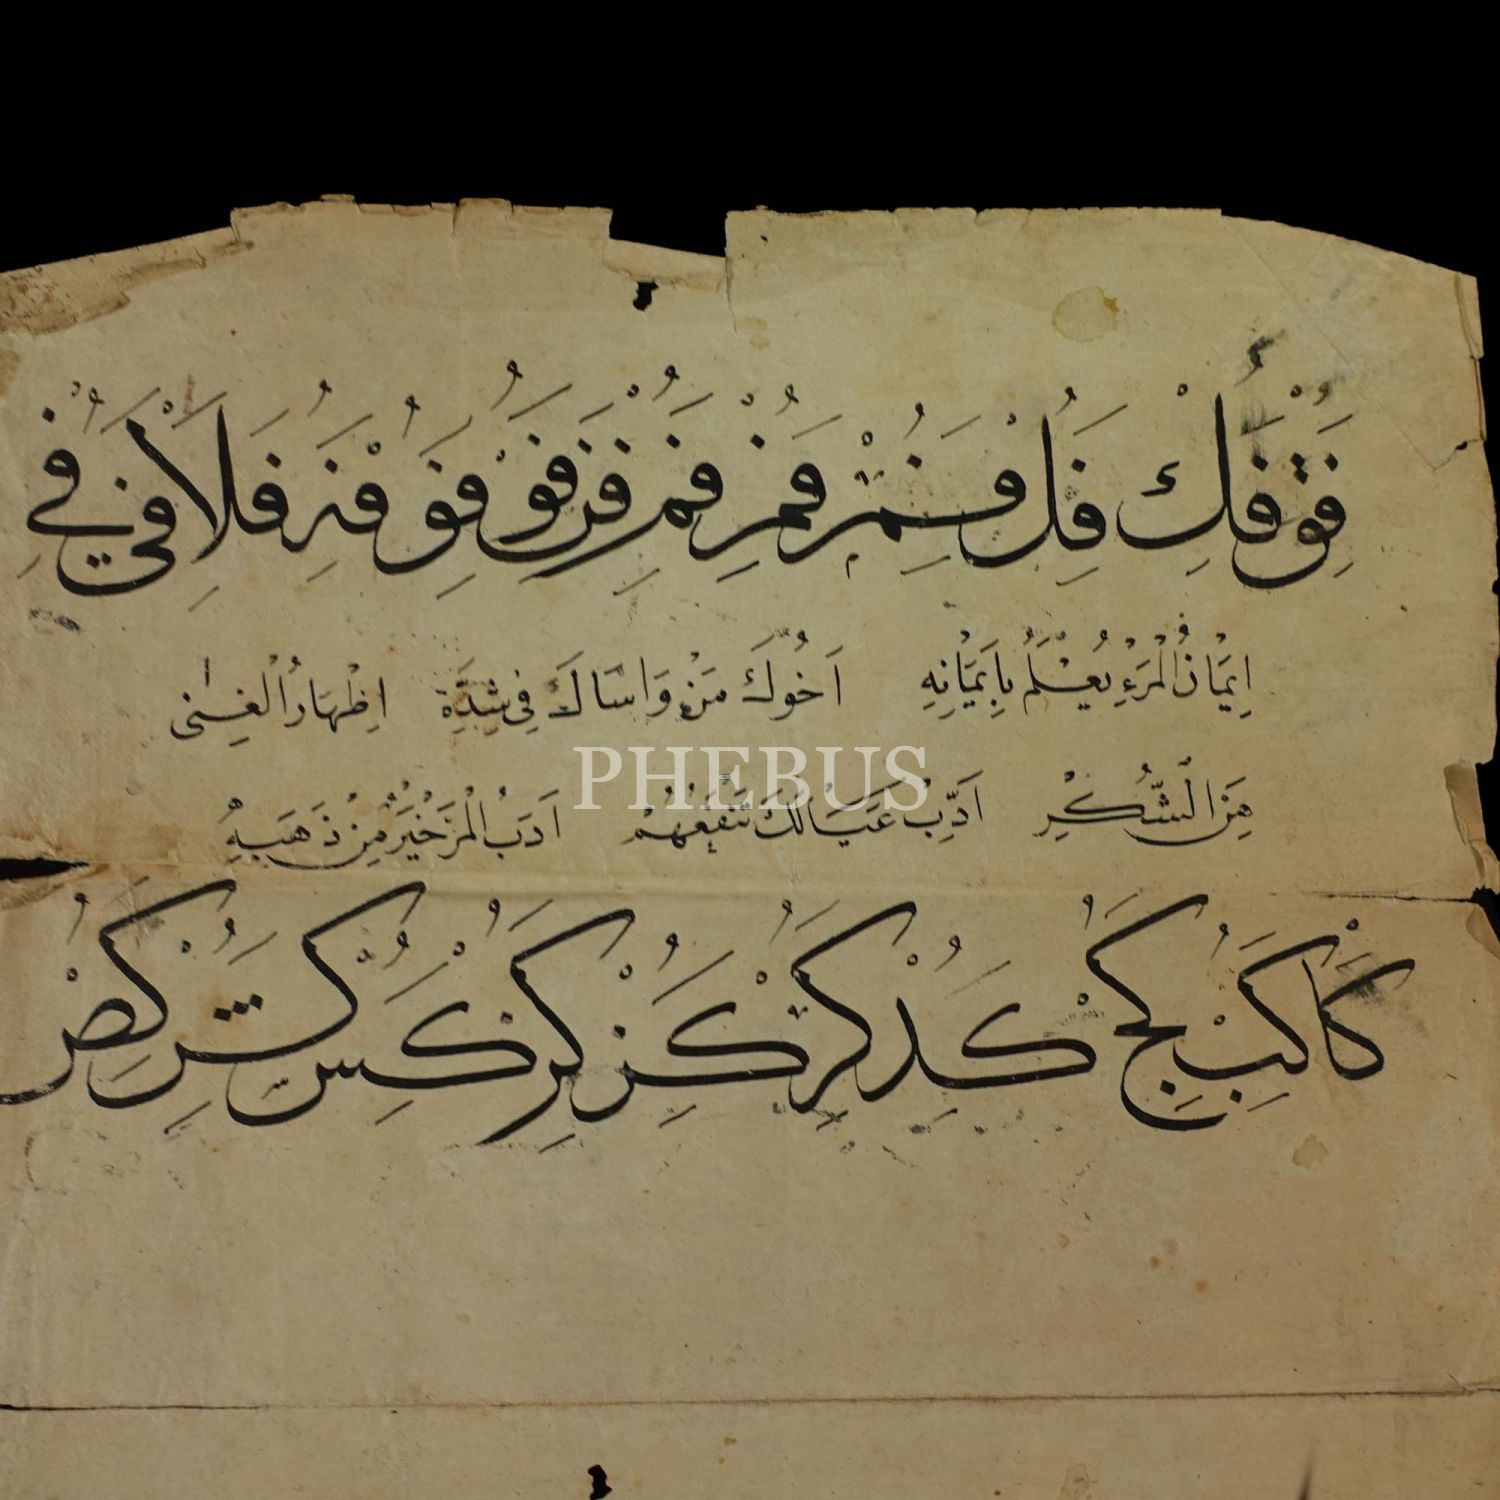 فق فك فل فم فمر فمن فم فن فو فو فه فلا فى فے
اِيمَانُ الْمَرْءِ يُعْلَمُ بِاَيْمَانِهِ اَخُوكَ مَنْ وَاسَاكَ فِى شِدَّةِ اِظْهَارُ الْغِنٰى
مِنَ الشُّكْرِ اَدِّبْ عَيَالَكَ تَنْفَعُهُمْ اَدَبُ الْمَرْءِ خَيْرٌ مِنْ ذَهَبِهِ
PHEBUS
كا كب كج كد كر كز كر كس كش كص